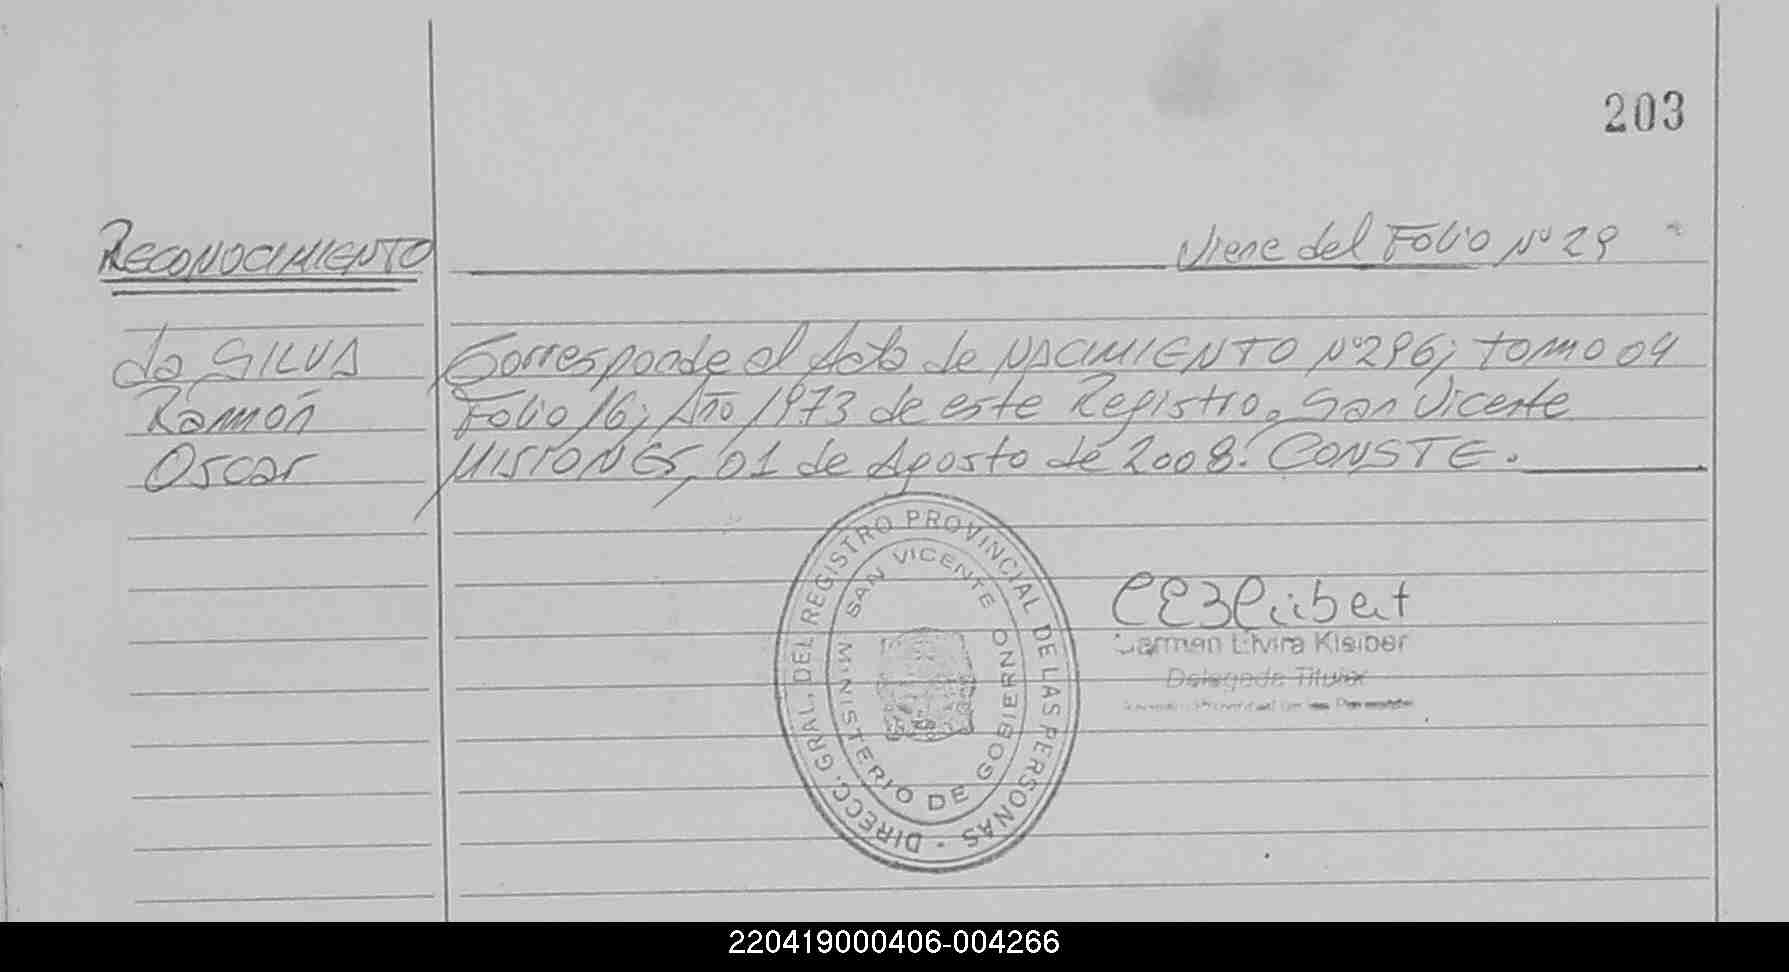 203
RECONOCIMIENTO
Viene del Folio Nº 29
da SILVA
Ramón
Oscar
Corresponde al Acta de NACIMIENTO Nº 296; TOMO 04
Folio 16; Año 1973 de este Registro. San Vicente
MISIONES, 01 de Agosto de 2008. CONSTE.
DIRECC. GRAL. DEL REGISTRO PROVINCIAL DE LAS PERSONAS
SAN VICENTE
MINISTERIO DE GOBIERNO
Carmen Elvira Kleiber
Delegada Titular
220419000406-004266